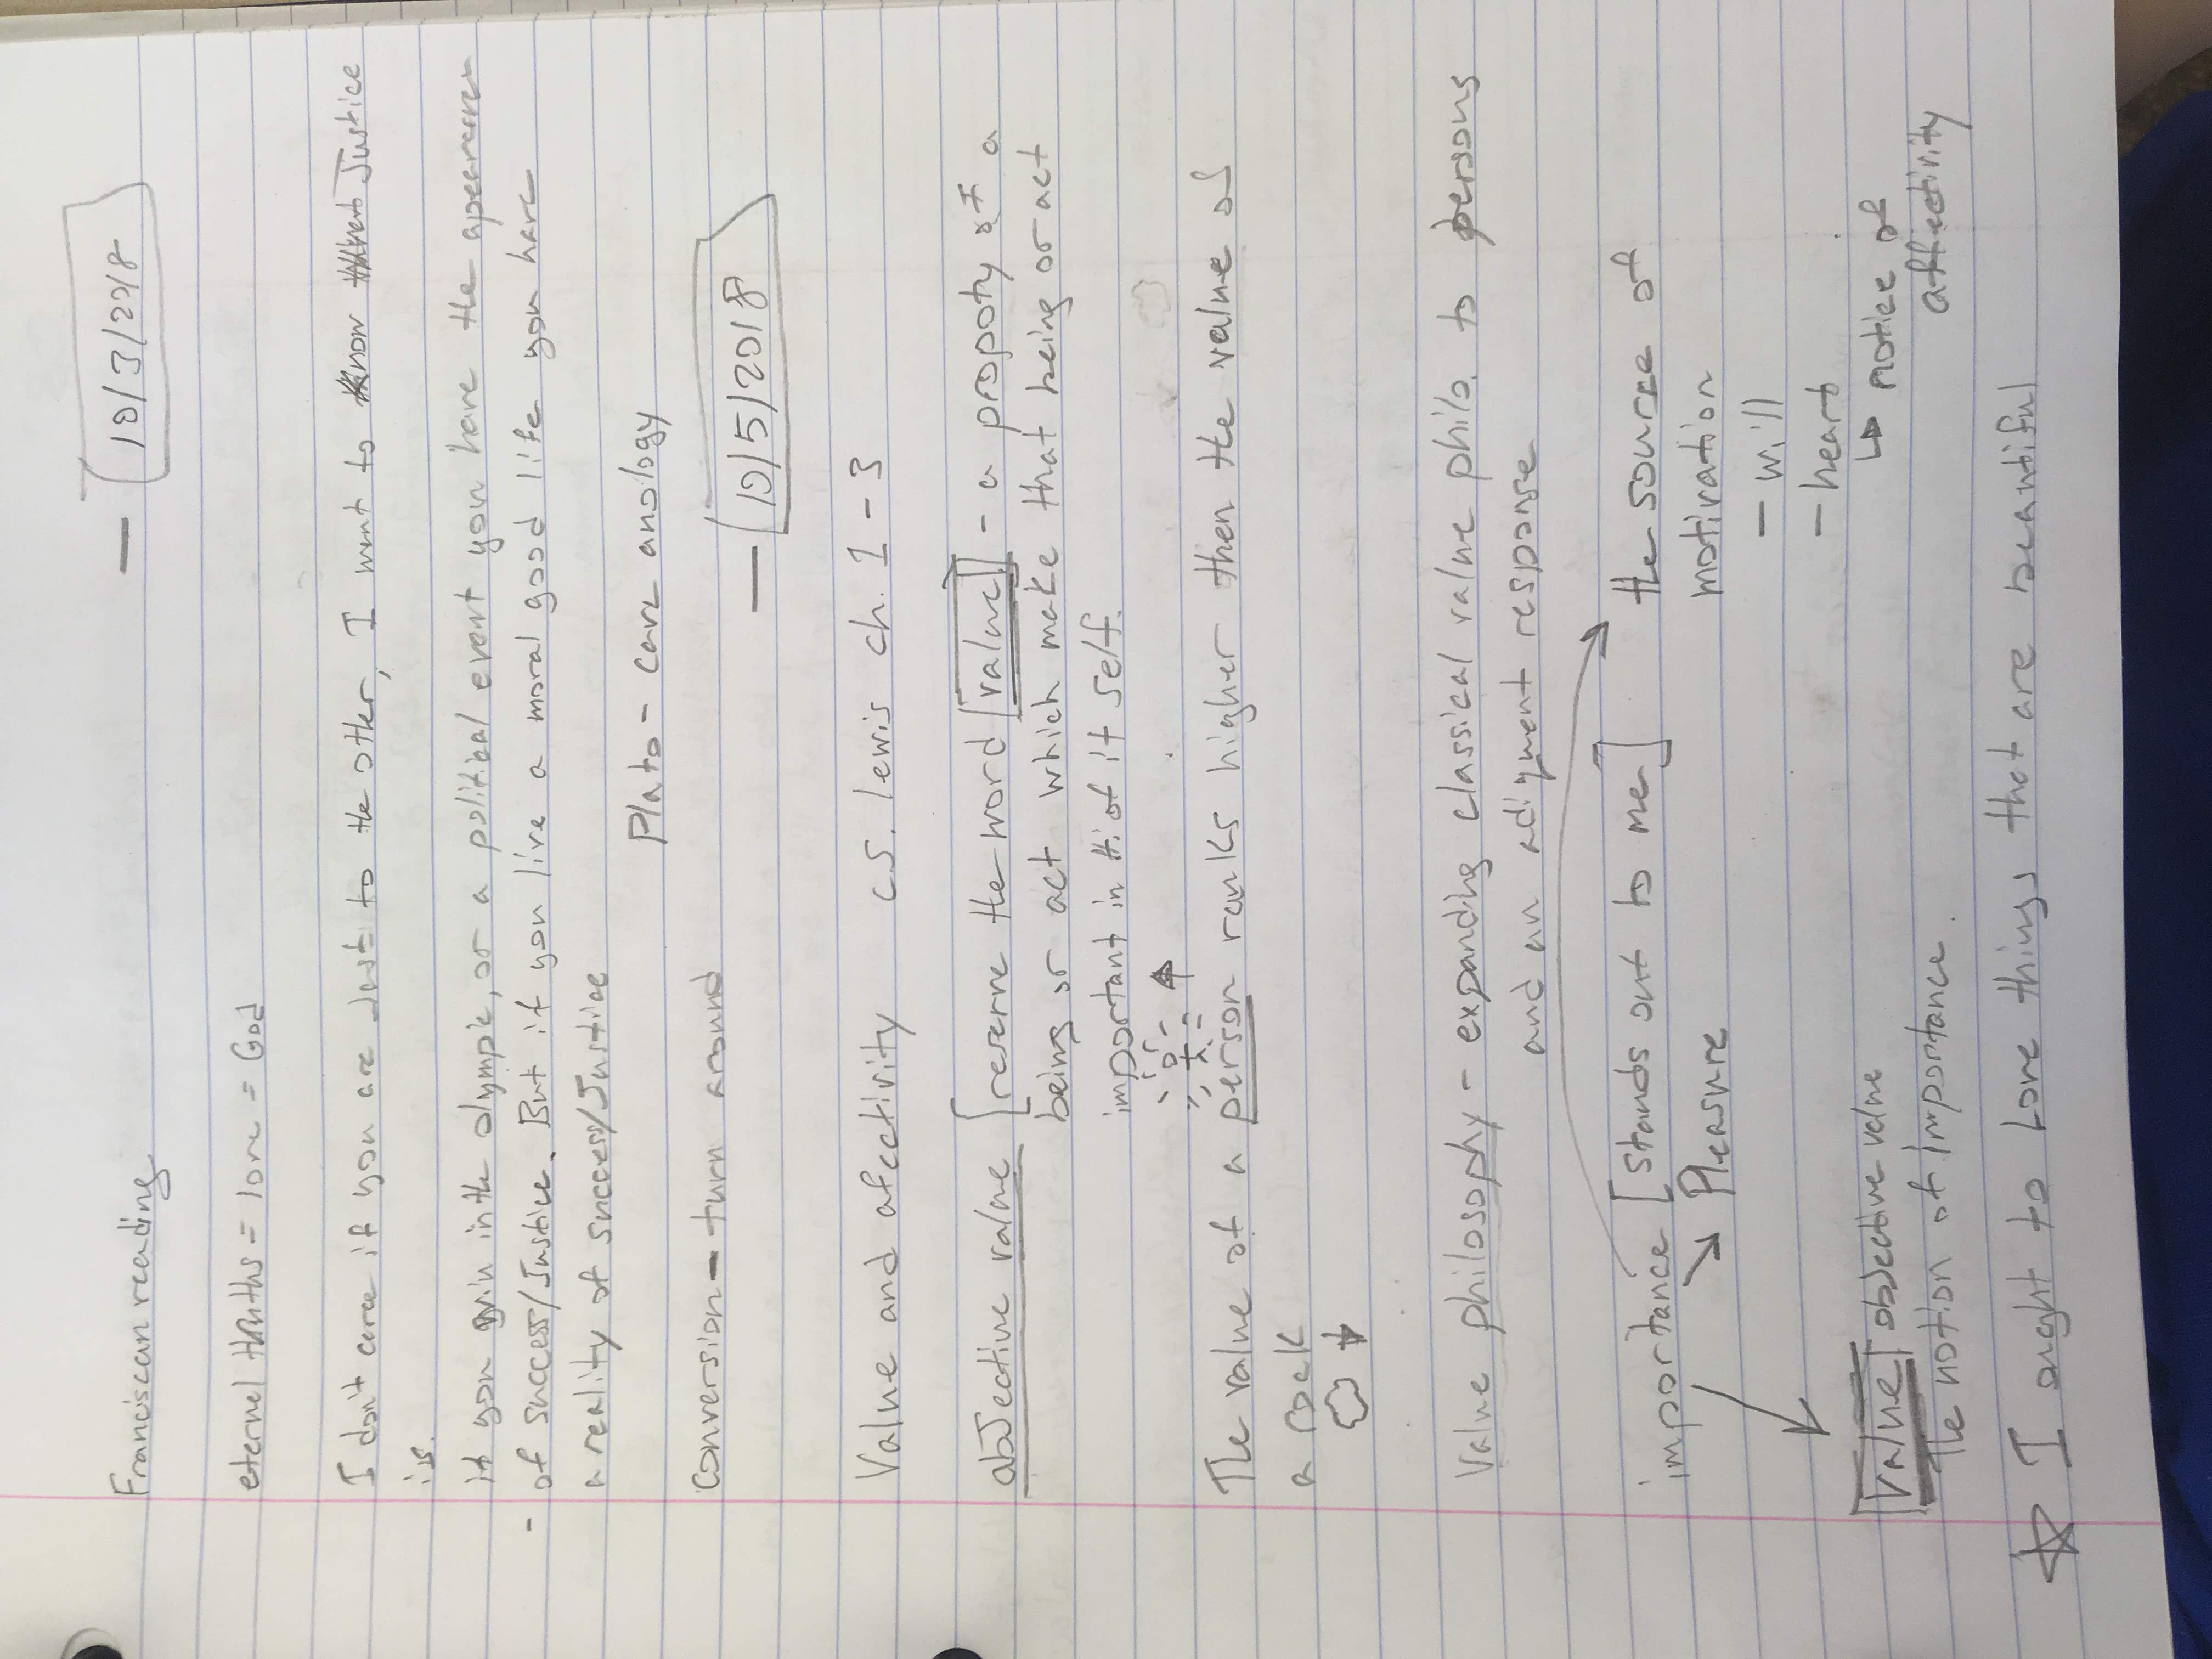 Franciscan reading — 10/3/2018
eternel truths = love = God
I don't care if you are Just to the other, I want to know Justice
is.
if you win in the olympic, or a political event you have the
- of success/Justice. But if you live a moral good life you have
a reality of success/Justice
Plato - cave anology
Conversion - turn around
— 10/5/2018
Value and afectivity C.S. lewis ch. 1-3
obJective value [reserve the word [value]] - a propoty of a
being or act which make that being or act
important in of it self.
The value of a person ranks higher then the value of
a rock
Value philosophy - expanding classical value philo. to persons
and an response
importance [stands out to me] the source of
motivation
Pleasure
- will
- heart
[Value] objective value
notice of
affectivity
The notion of Importance.
☆ I ought to love things that are beautiful